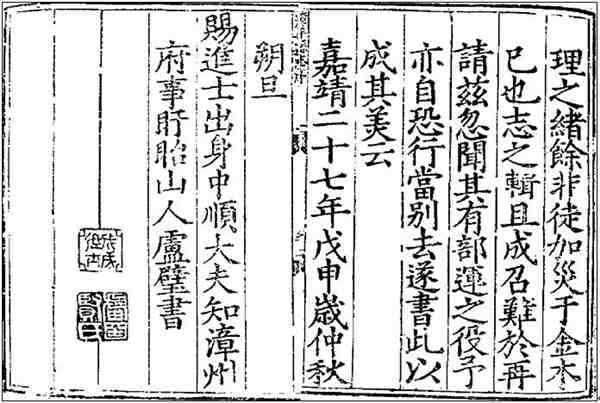 理之緒餘非徒加災于金木
已也志之輯且成召難於再
請茲忽聞其有部運之役予
亦自恐行當別去遂書此以
成其美云
嘉靖二十七年戊申歲仲秋
朔旦
賜進士出身中順大夫知漳州
府事盱眙山人盧璧書